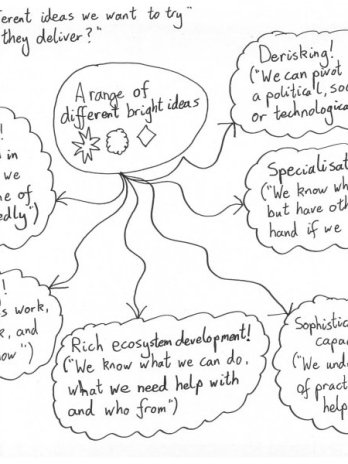 ferent ideas we want to try"
they deliver?"
A range of
different bright ideas
Derisking!
("We can pivot
a political, soc
or technologica
Specialisat
("We know wh
but have oth
hand if we
!
in
we
ne of
edly")
!
s work,
k, and
now")
Rich ecosystem development!
("We know what we can do,
what we need help with
and who from")
Sophistic
capa
("We und
of pract
help